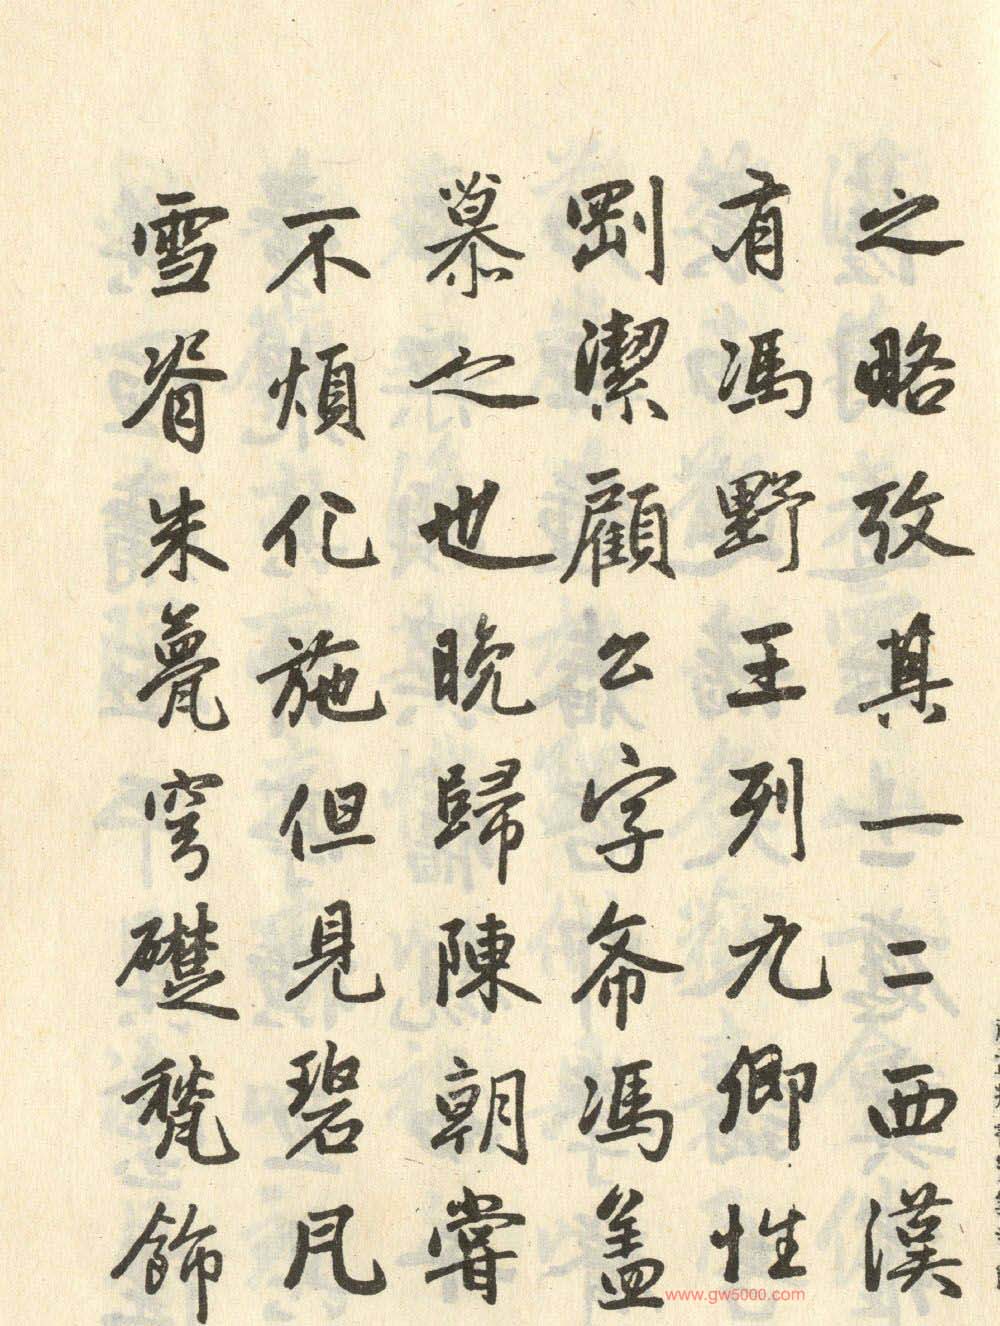 之略攷其一二西漢
有馮野王列九卿性
剛潔顧公字命馮蓋
慕之也晚歸陳朝嘗
不煩化施但見碧凡
雪脊朱甍穹礎甃飾
www.gw5000.com